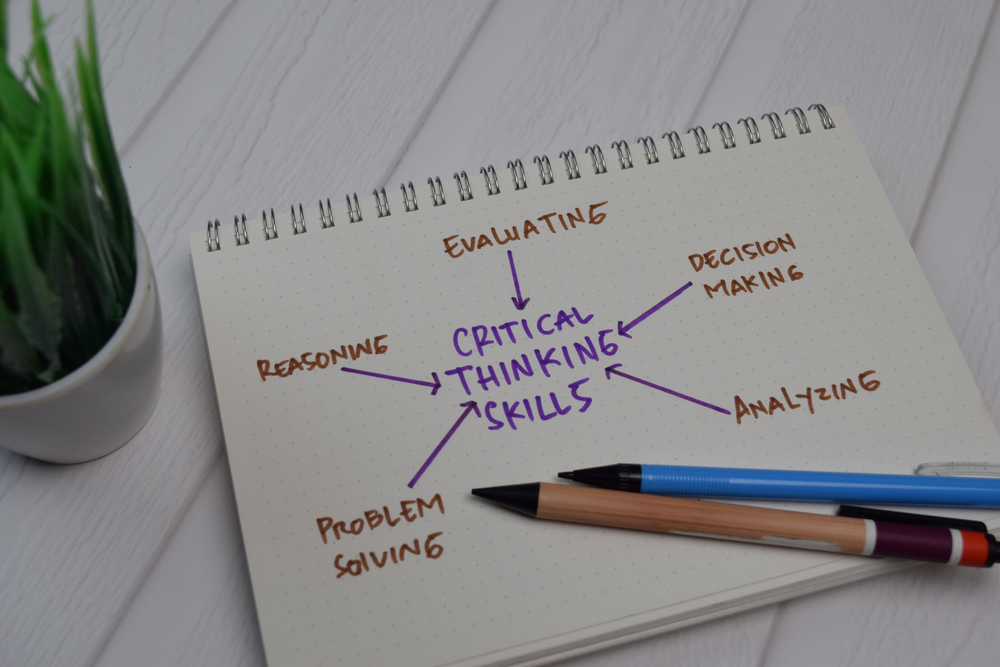 EVALUATING
DECISION
MAKING
CRITICAL
THINKING
SKILLS
REASONING
ANALYZING
PROBLEM
SOLVING